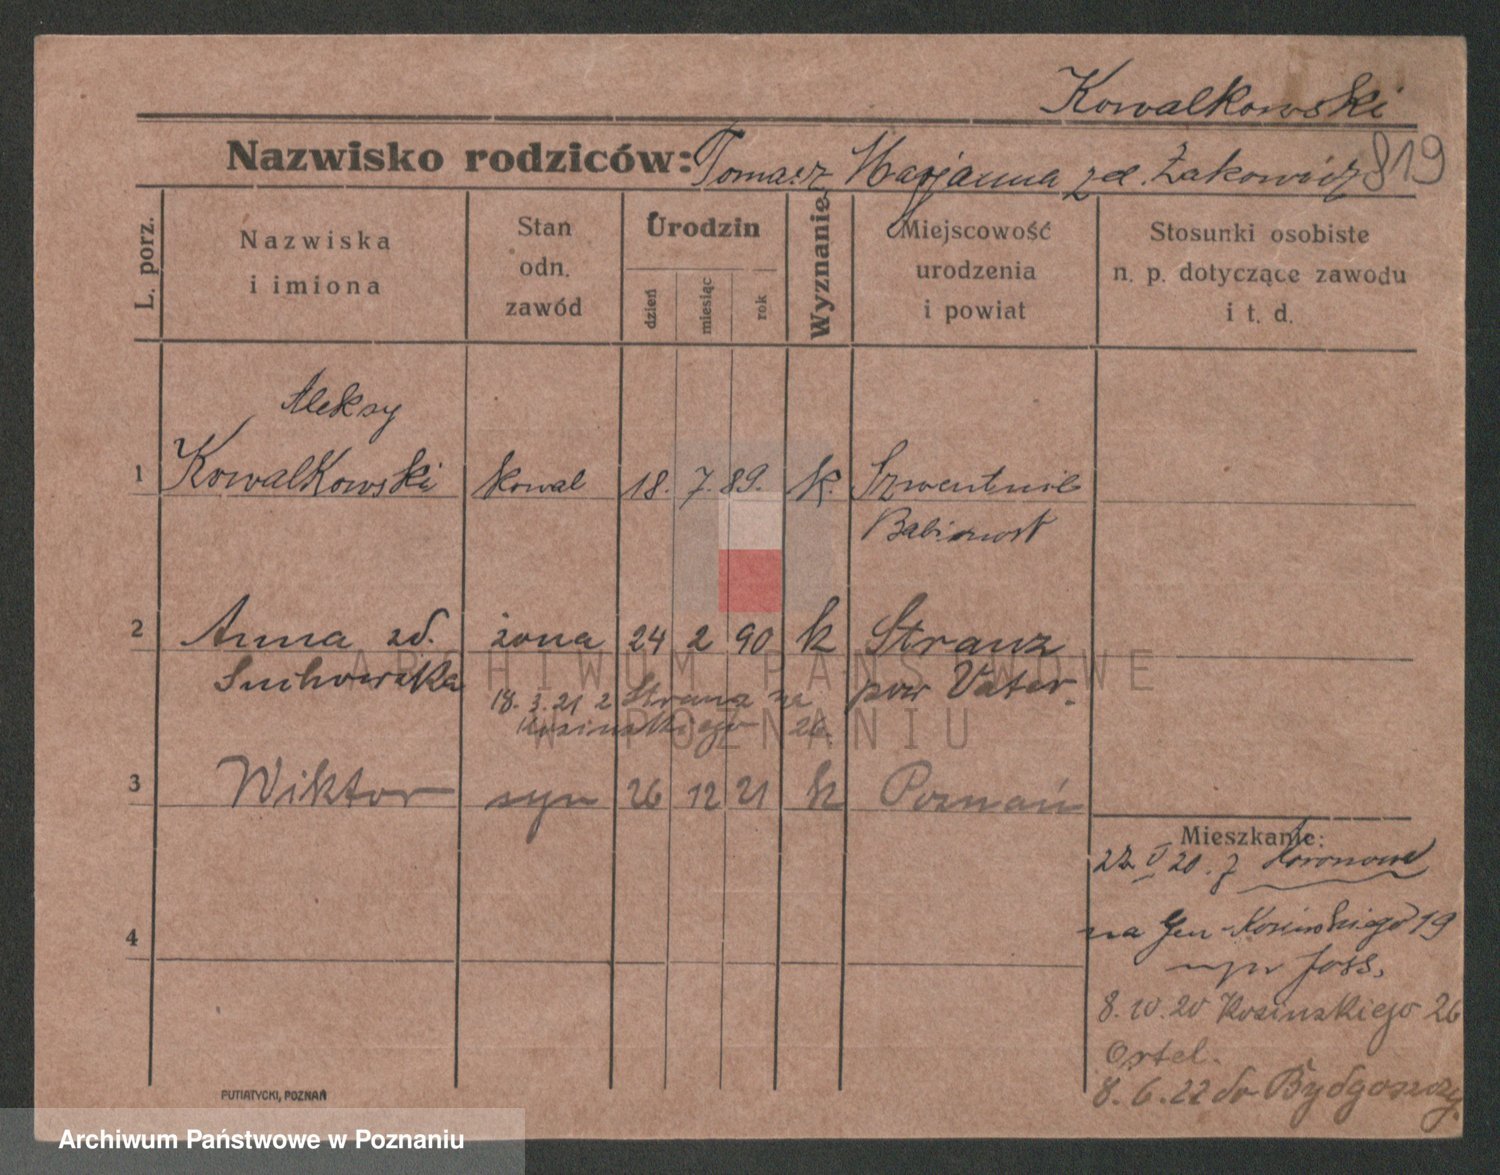 Kowalkowski
Nazwisko rodziców: Tomasz Marjanna zd. Żakowicz 819
L. porz.
Nazwiska
i imiona
Stan
odn.
zawód
Urodzin
dzień
miesiąc
rok
Wyznanie
Miejscowość
urodzenia
i powiat
Stosunki osobiste
n. p. dotyczące zawodu
i t. d.
Aleksy
1 Kowalkowski kowal 18. 7. 89. k.
Babimost
2 Anna zd. żona 24 2 90 k Stranz
Suchowska pow Vater.
18. 3. 21 z Stranz na
Kosinskiego 26.
3 Wiktor syn 26 12 21 k Poznań
Mieszkanie:
22 V 20. z Koronowa
na Gen Kosinskiego 19
8. 10. 20 Kosinskiego 26
Ortel.
8. 6. 22 do Bydgoszczy
4
PUTIATYCKI, POZNAŃ
ARCHIWUM PAŃSTWOWE
W POZNANIU
Archiwum Państwowe w Poznaniu